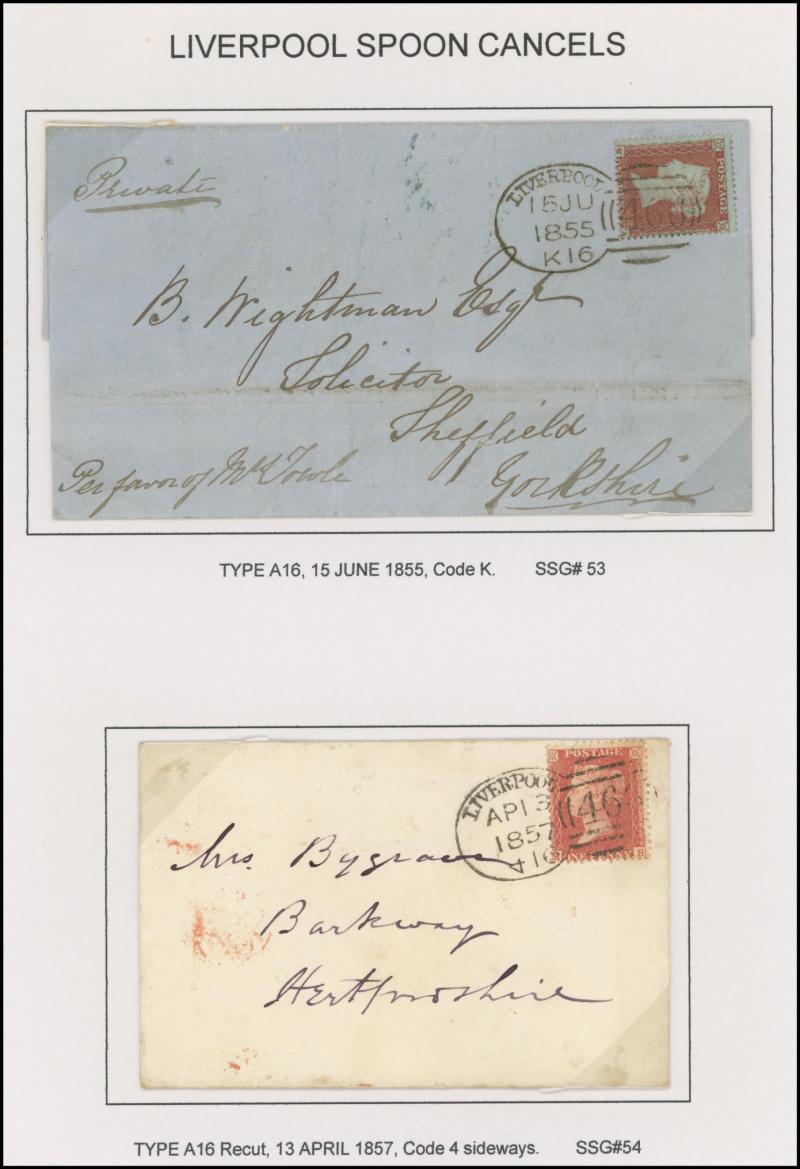 LIVERPOOL SPOON CANCELS
Private
LIVERPOOL
15JU
1855
K16
466
POSTAGE
B. Wightman Esqr
Solicitor
Sheffield
Yorkshire
Per favor of
TYPE A16, 15 JUNE 1855, Code K. SSG# 53
POSTAGE
LIVERPOOL
AP13
1857
416
46
ONE PENNY
B
Mrs. Bygrave
Barkway
Hertfordshire
TYPE A16 Recut, 13 APRIL 1857, Code 4 sideways. SSG#54